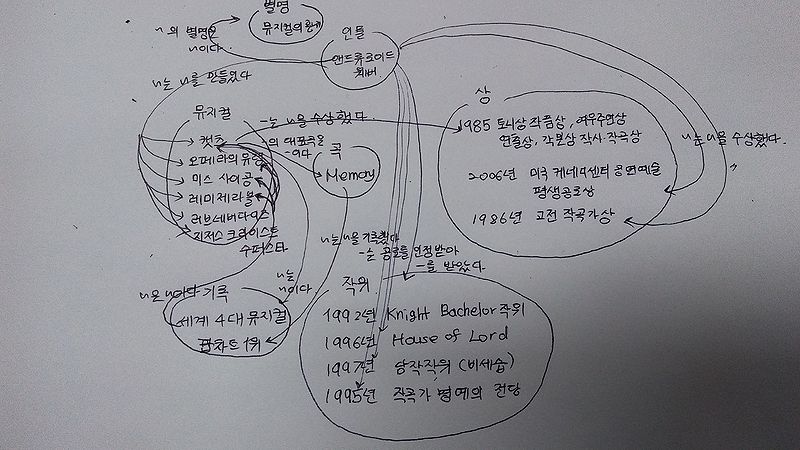 별명
뮤지컬의 황제
~의 별명은
~이다.
인물
앤드류로이드
웨버
~는 ~를 만들었다
뮤지컬
캣츠
오페라의 유령
미스 사이공
레미제라블
러브네버다이즈
지저스 크라이스트
수퍼스타
~는 ~을 수상했다.
~의 대표곡은
~이다
곡
Memory
상
1985 토니상 작품상, 여우주연상
연출상, 각본상 작사·작곡상
2006년 미국 케네디센터 공연예술
평생공로상
1986년 고전 작곡가상
~는 ~을 수상했다.
~는 ~을 기록했다
~는 공로를 인정받아
~를 받았다.
~은 ~이다
~는
~이다
기록
세계 4대 뮤지컬
팝차트 1위
작위
1992년 Knight Bachelor 작위
1996년 House of Lord
1997년 남작작위 (비세습)
1995년 작곡가 명예의 전당